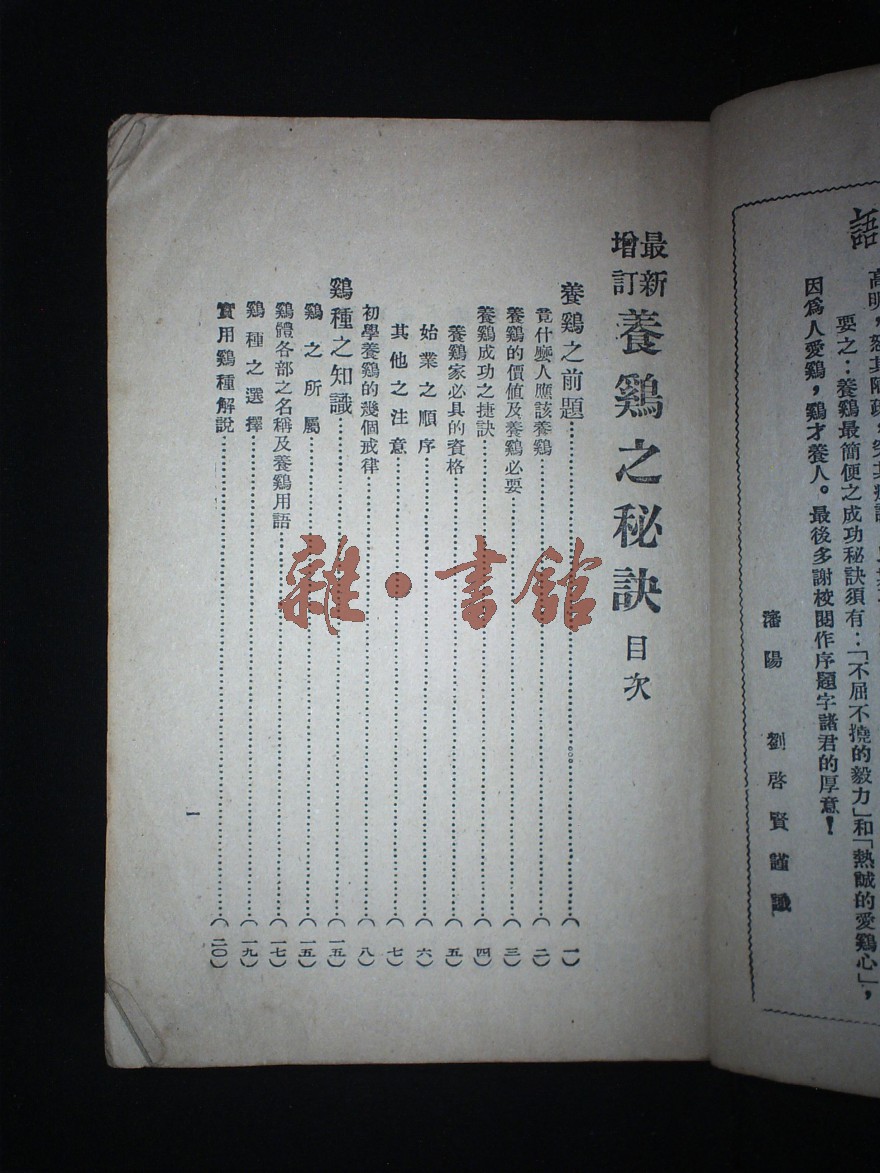 語
高明，恕其陋疎，
要之：養鷄最簡便之成功秘訣須有：「不屈不撓的毅力」和「熱誠的愛鷄心」，
因爲人愛鷄，鷄才養人。最後多謝校閱作序題字諸君的厚意！
瀋陽 劉啓賢謹識
最新增訂 養鷄之秘訣 目次
養鷄之前題……（一）
竟什麼人應該養鷄……（二）
養鷄的價値及養鷄必要……（三）
養鷄成功之捷訣……（四）
養鷄家必具的資格……（五）
始業之順序……（六）
其他之注意……（七）
初學養鷄的幾個戒律……（八）
鷄種之知識……（一五）
鷄之所屬……（一五）
鷄體各部之名稱及養鷄用語……（一七）
鷄種之選擇……（一九）
實用鷄種解說……（二〇）
一
雜·書館